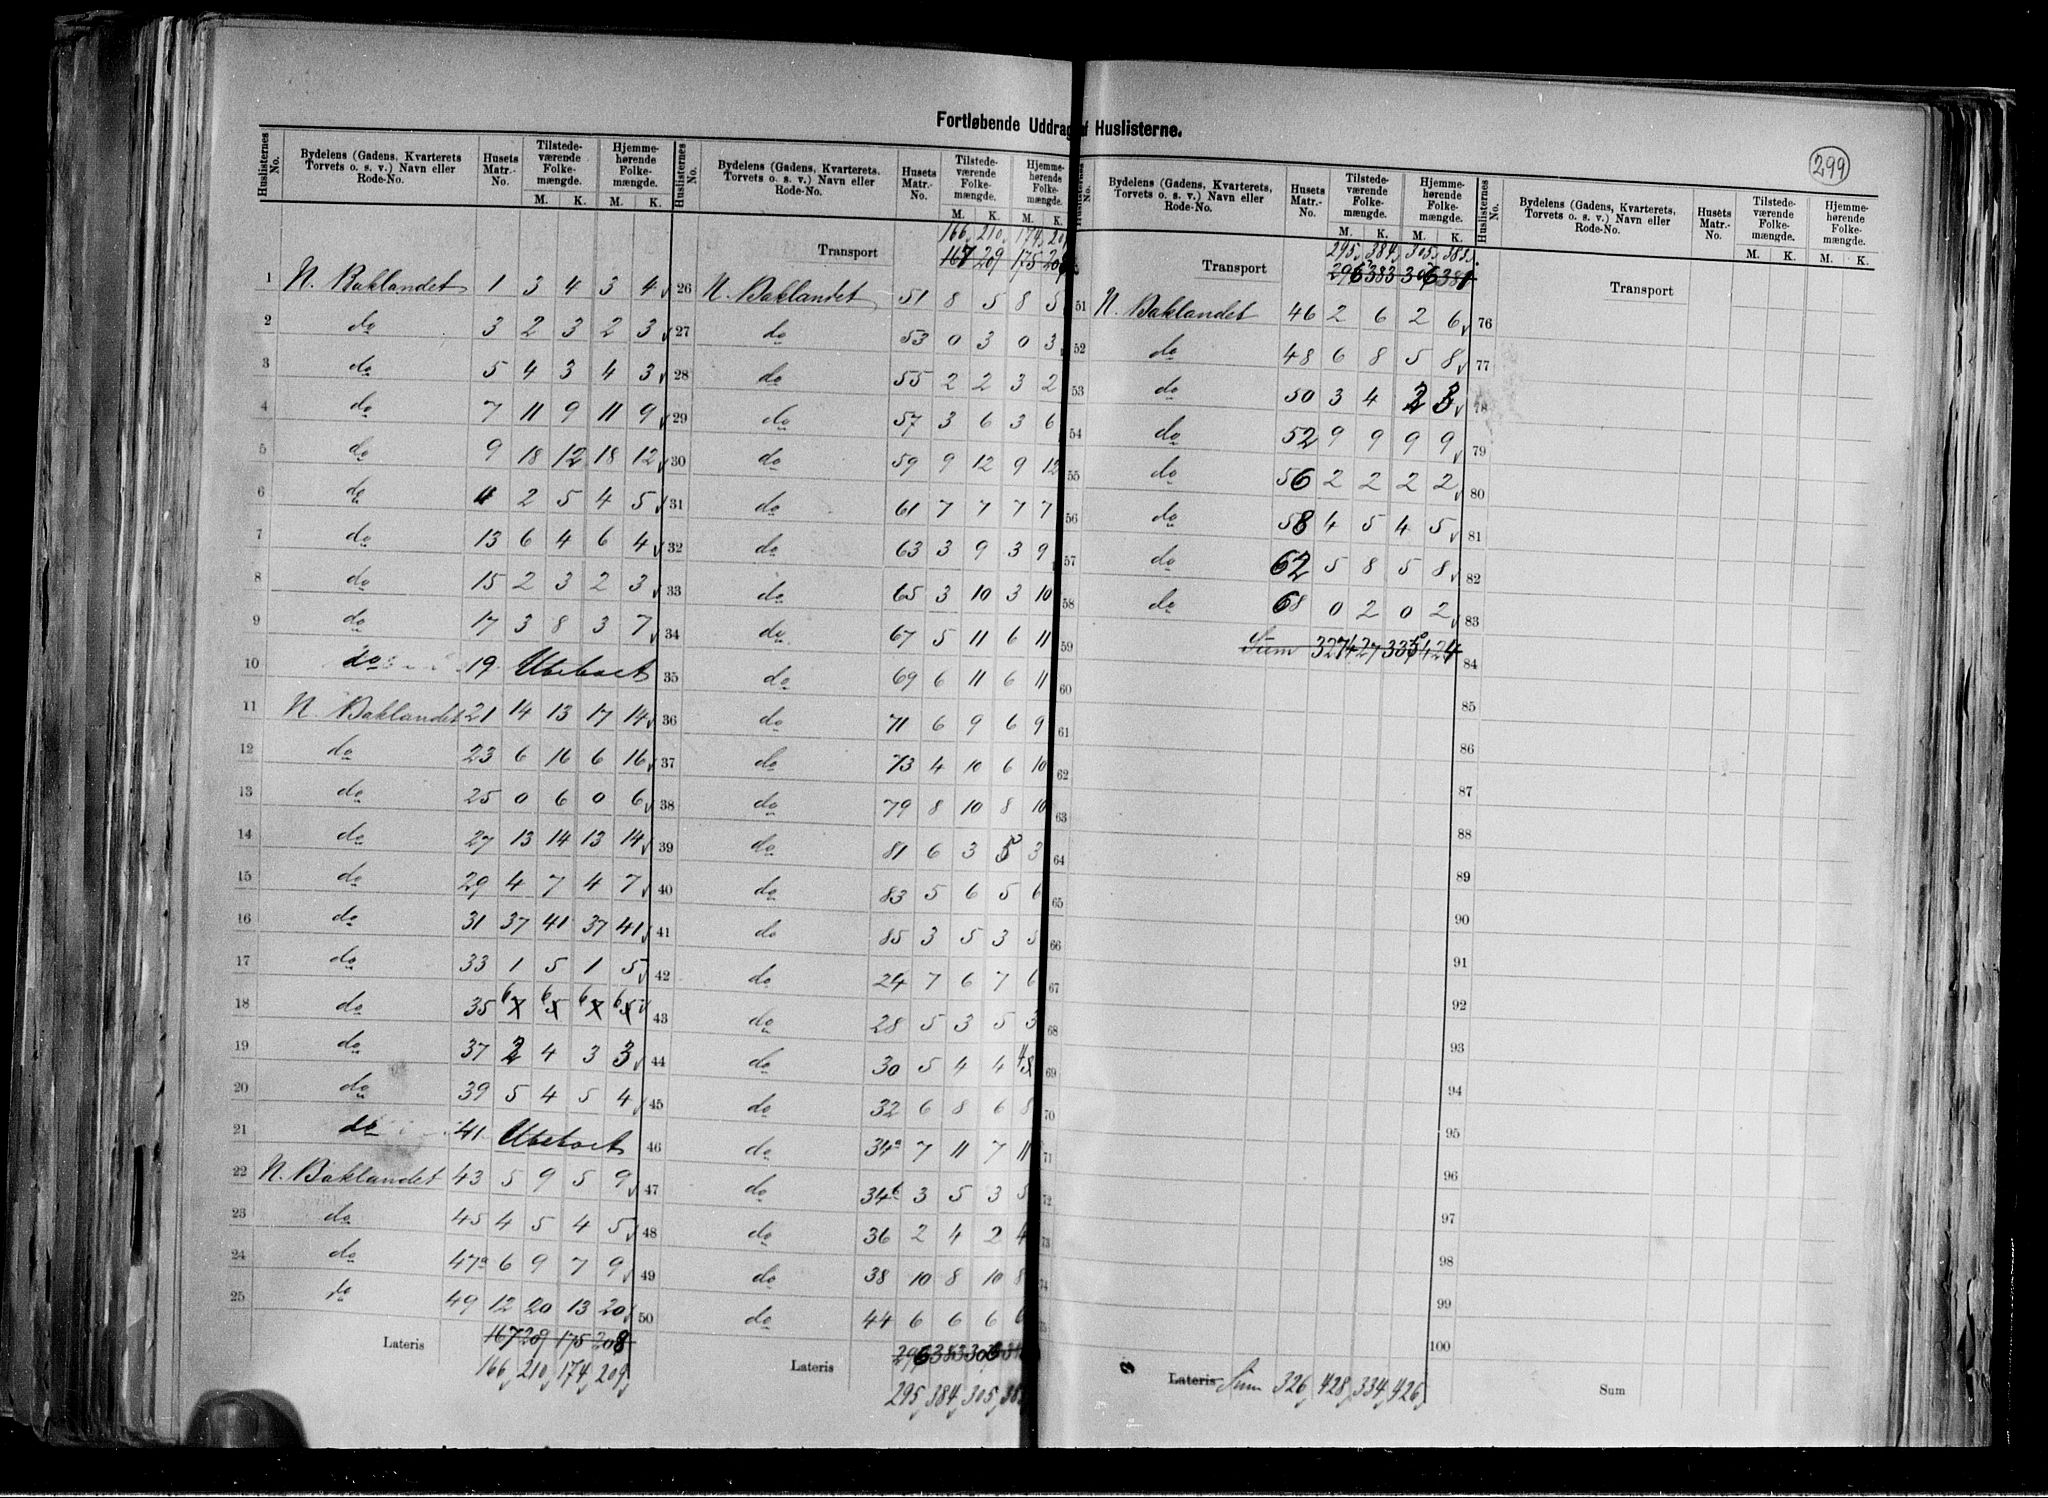 299
Fortløbende Uddrag af Huslisterne.
Huslisternes No. | Bydelens (Gadens, Kvarterets Torvets o. s. v.) Navn eller Rode-No. | Husets Matr.-No. | Tilstedeværende Folkemængde. M. K. | Hjemmehørende Folkemængde. M. K.
1 N. Baklandet 1 3 4 3 4
2 do 3 2 3 2 3
3 do 5 4 3 4 3
4 do 7 11 9 11 9
5 do 9 18 12 18 12
6 do 11 2 5 4 5
7 do 13 6 4 6 4
8 do 15 2 3 2 3
9 do 17 3 8 3 7
10 do 19 Ubeboet
11 N. Baklandet 21 14 13 17 14
12 do 23 6 16 6 16
13 do 25 0 6 0 6
14 do 27 13 14 13 14
15 do 29 4 7 4 7
16 do 31 37 41 37 41
17 do 33 1 5 1 5
18 do 35 6 6 6 6
19 do 37 2 4 3 3
20 do 39 5 4 5 4
21 do 41 Ubeboet
22 N. Baklandet 43 5 9 5 9
23 do 45 4 5 4 5
24 do 47a 6 9 7 9
25 do 49 12 20 13 20
Lateris 167 209 175 208
166 210 174 209
Huslisternes No. | Bydelens (Gadens, Kvarterets, Torvets o. s. v.) Navn eller Rode-No. | Husets Matr.-No. | Tilstedeværende Folkemængde. M. K. | Hjemmehørende Folkemængde. M. K.
166 210 174 209
Transport 167 209 175 208
26 N. Baklandet 51 8 5 8 5
27 do 53 0 3 0 3
28 do 55 2 2 3 2
29 do 57 3 6 3 6
30 do 59 9 12 9 12
31 do 61 7 7 7 7
32 do 63 3 9 3 9
33 do 65 3 10 3 10
34 do 67 5 11 6 11
35 do 69 6 11 6 11
36 do 71 6 9 6 9
37 do 73 4 10 6 10
38 do 79 8 10 8 10
39 do 81 6 3 5 3
40 do 83 5 6 5 6
41 do 85 3 5 3 5
42 do 24 7 6 7 6
43 do 28 5 3 5 3
44 do 30 5 4 4 4
45 do 32 6 8 6 8
46 do 34a 7 11 7 11
47 do 34b 3 5 3 5
48 do 36 2 4 2 4
49 do 38 10 8 10 8
50 do 44 6 6 6 6
Lateris 296 383 306
295 384 305 385
Huslisternes No. | Bydelens (Gadens, Kvarterets, Torvets o. s. v.) Navn eller Rode-No. | Husets Matr.-No. | Tilstedeværende Folkemængde. M. K. | Hjemmehørende Folkemængde. M. K.
295 384 305 385
Transport 296 383 306
51 N. Baklandet 46 2 6 2 6
52 do 48 6 8 5 8
53 do 50 3 4 2 3
54 do 52 9 9 9 9
55 do 56 2 2 2 2
56 do 58 4 5 4 5
57 do 62 5 8 5 8
58 do 68 0 2 0 2
59 Sum 327 427 335 424
60
61
62
63
64
65
66
67
68
69
70
71
72
73
74
75
Lateris Sum 326 428 334 426
Huslisternes No. | Bydelens (Gadens, Kvarterets, Torvets o. s. v.) Navn eller Rode-No. | Husets Matr.-No. | Tilstedeværende Folkemængde. M. K. | Hjemmehørende Folkemængde. M. K.
Transport
76
77
78
79
80
81
82
83
84
85
86
87
88
89
90
91
92
93
94
95
96
97
98
99
100
Sum